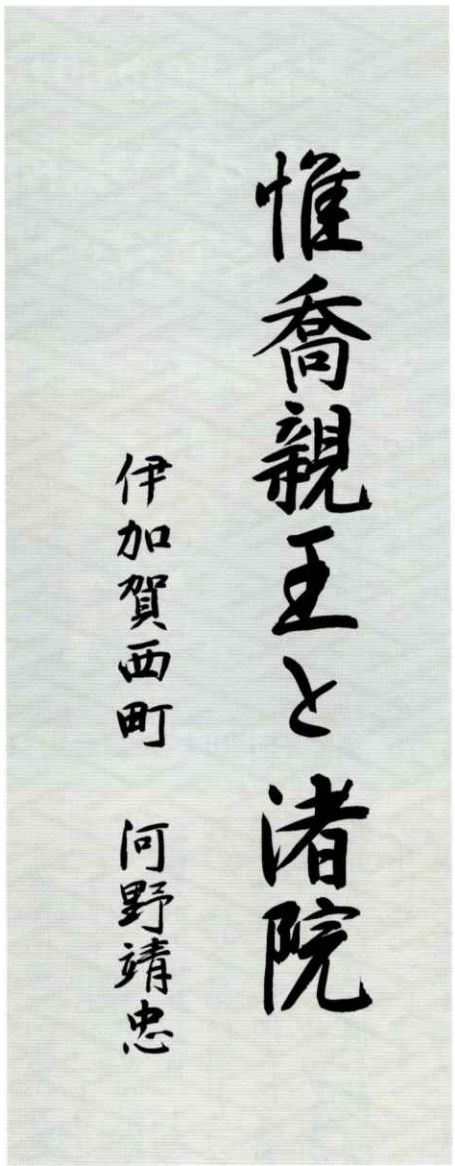 惟喬親王と渚院
伊加賀西町　河野靖忠